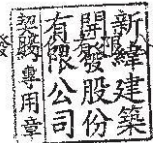 新緯建築
開發股份
有限公司
契約專用章